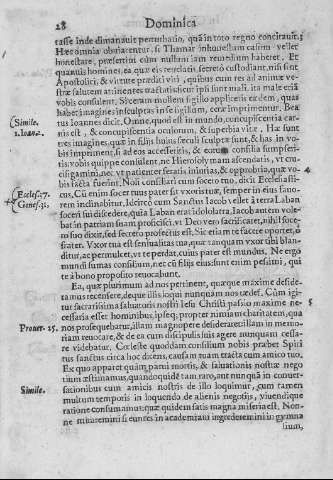 28 Dominica
tasse inde dimanauit perturbatio, quã in toto regno concitauit;
Hæc omnia obuiarentur, si Thamar inhonestam causam vellet
honestare, præsertim cum nullam iam reuerentiam haberet. Et
quamuis homines, ea quæ eis reuelatis secretò custodiant, nisi sint
Apostolici, & virtute prædicti viri, quibus cum res ad animæ vestræ
salutem attinentes tractastis; sicut ipsi sunt mali, ita male etiã
vobis consulent. Si ceram mollem sigillo applicetis eædem, quas
habet imagines insculptas in se sigillum, ceræ imprimentur. Beatus
Simile. Ioannes dicit. Omne, quod est in mundo, concupiscentia car-
1. Ioan. 2. nis est, & concupiscentia oculorum, & superbia vitæ. Hæ sunt
tres imagines, quæ in filijs huius seculi sculptæ sunt, & has in vobis
imprimẽt, si ad eos accesseritis, & eorum consilia sumpseritis:
vobis quippe consulent, ne Hierosolymam ascendatis, vt crucigamini,
nec vt patienter feratis iniurias, & opprobria, quæ vobis
4
facta fuerint. Noli consiliari cum socero tuo, dicit Ecclesiasticus,
Eccles. 37. Cũ enim socer tuus pater sit vxoris tuæ, semper in eius fauorem
Genes. 31. inclinabit. Idcircò cum Sanctus Iacob vellet à terra Laban
soceri sui discedere, quia Laban erat idololatra, Iacob autem volebat
in patriam suam proficisci, vt Deo vero sacrificaret, nihil socero
suo dixit, sed secretò profectus est. Sic etiam te facere oportet, ò
frater. Vxor tua est sensualitas tua, quæ tanquam vxor tibi blanditur,
ac permulcet, vt te perdat, cuius pater est mundus. Ne ergo
mundi sumas consilium, nec cũ filijs eius; sunt enim pessimi, qui
te à bono proposito reuocabunt.
Ea, quæ plurimum ad nos pertinent, quæque maxime desideramus
recensere, deque illis loqui nunquam nos tædet. Cùm igitur
sacratissima saluatoris nostri Iesu Christi passio maximè ne- 5
cessaria esset hominibus, ipseq; propter nimiam charitatem, qua
Prouer. 25. nos prosequebatur, illam magnopere desideraret; illam in memoriam
reuocare, & de ea cum discipulis suis agere nunquam cessare
videbatur. Cœleste quoddam consilium nobis præbet Spiritus
sanctus circa hoc dicens, causam tuam tracta cum amico tuo.
Ex quo apparet quàm parui mortis, & saluationis nostræ negotium
æstimamus, quandoquidẽ tam raro, aut nunquã in conuer-
Simile. sationibus cum amicis nostris de illo loquimur, cum tamen
multum temporis in loquendo de alienis negotijs, viuendique
ratione consumamus; quæ quidem satis magna miseria est. Nonne
miraremini si euntes in academiam ingrederemini in gymna
sium,